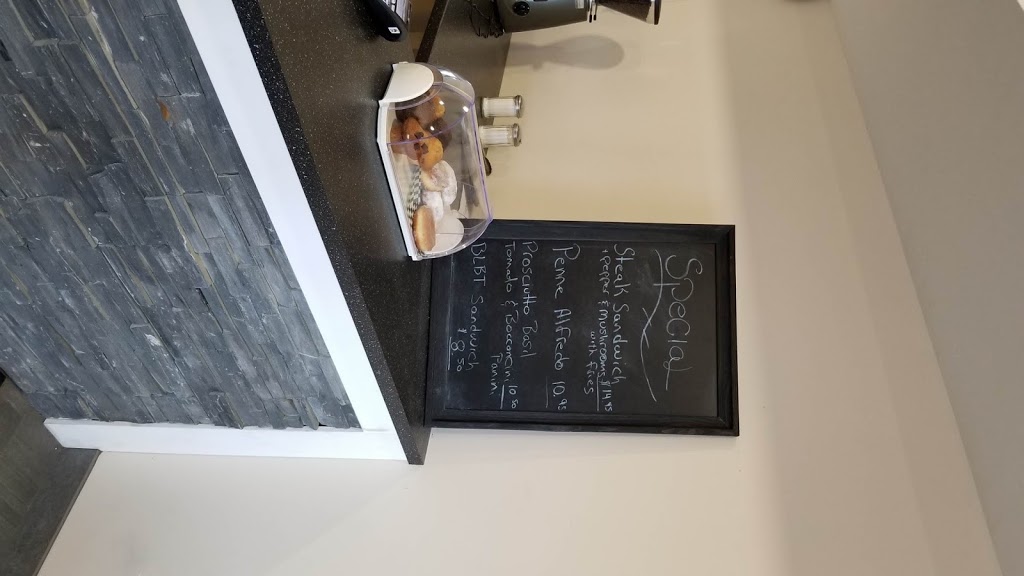 Special
Steak Sandwich
+ Peppers + mushrooms $14.95
with fries
Penne Alfredo 10.95
Prosciutto Basil
Tomato & Boccancin 10.50
Panini
BLBT Sandwich
$8.50